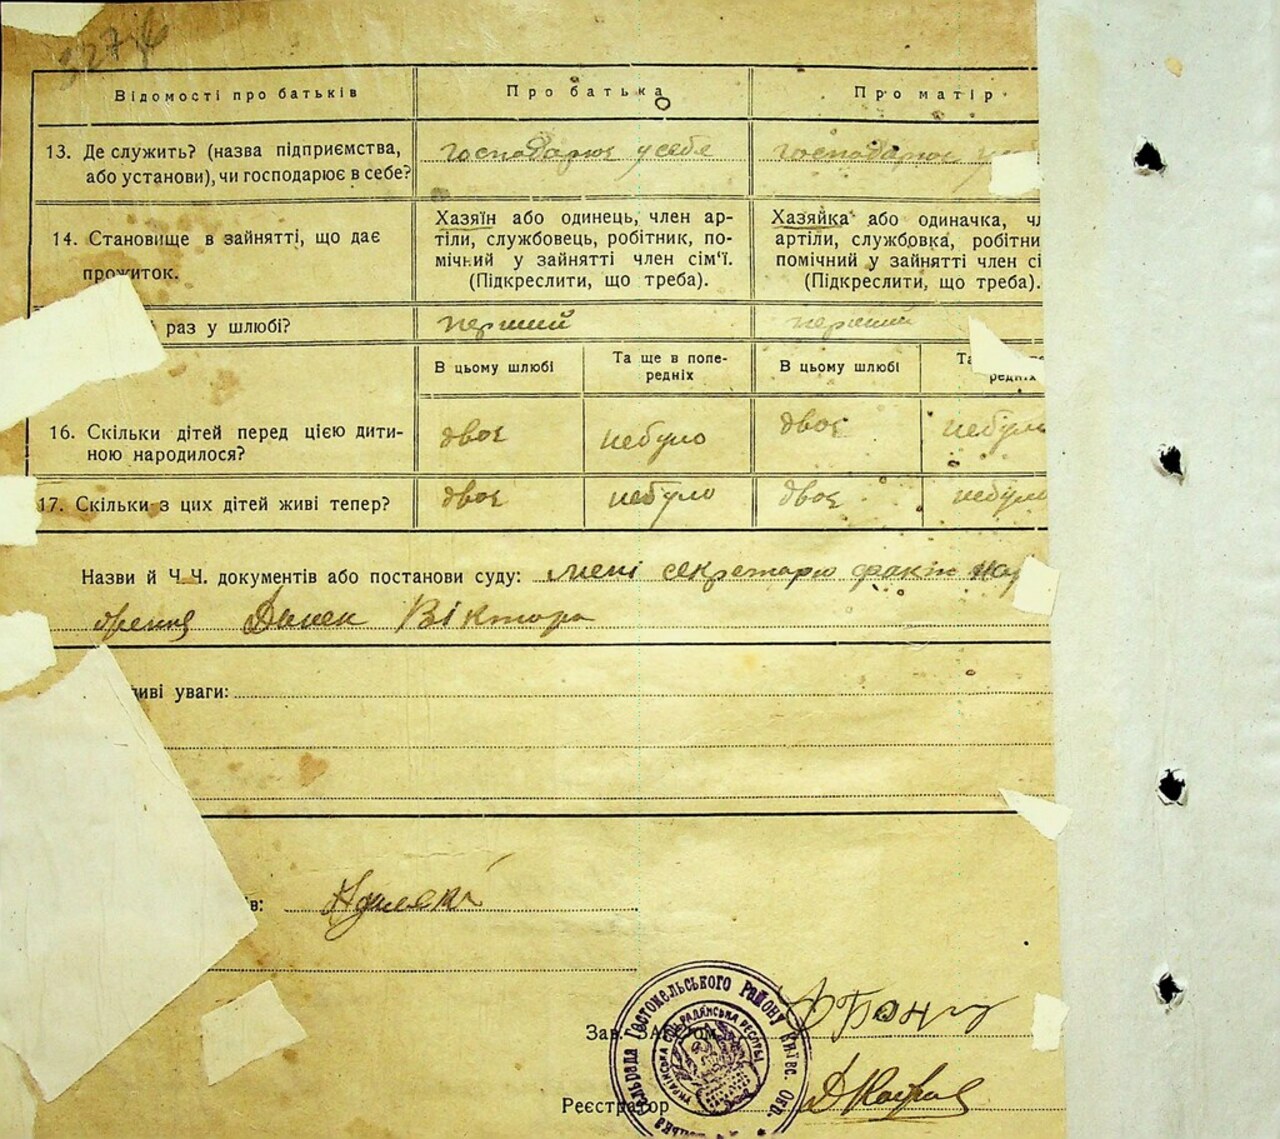 3276
Відомості про батьків
Про батька
Про матір
13. Де служить? (назва підприємства,
або установи), чи господарює в себе?
господарює у себе
господарює
14. Становище в зайнятті, що дає
прожиток.
Хазяїн або одинець, член ар-
тіли, службовець, робітник, по-
мічний у зайнятті член сім'ї.
(Підкреслити, що треба).
Хазяйка або одиначка, чл
артіли, службовка, робітни
помічний у зайнятті член сі
(Підкреслити, що треба).
раз у шлюбі?
перший
перший
В цьому шлюбі
Та ще в попе-
редніх
В цьому шлюбі
Та
редніх
16. Скільки дітей перед цією дити-
ною народилося?
двоє
небуло
двоє
небуло
17. Скільки з цих дітей живі тепер?
двоє
небуло
двоє
небуло
Назви й Ч.Ч. документів або постанови суду: мені секретарю факт на
Віктора
иві уваги:
ів:
Зав. ЗАГС'ом
Реєстратор
сільрада Гостомельського Району Київс. Обл.
Українська Соц. Радянська Республ.